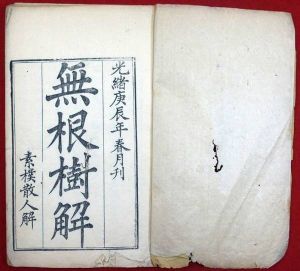 光緒庚辰年春月刊
無根樹解
素樸散人解